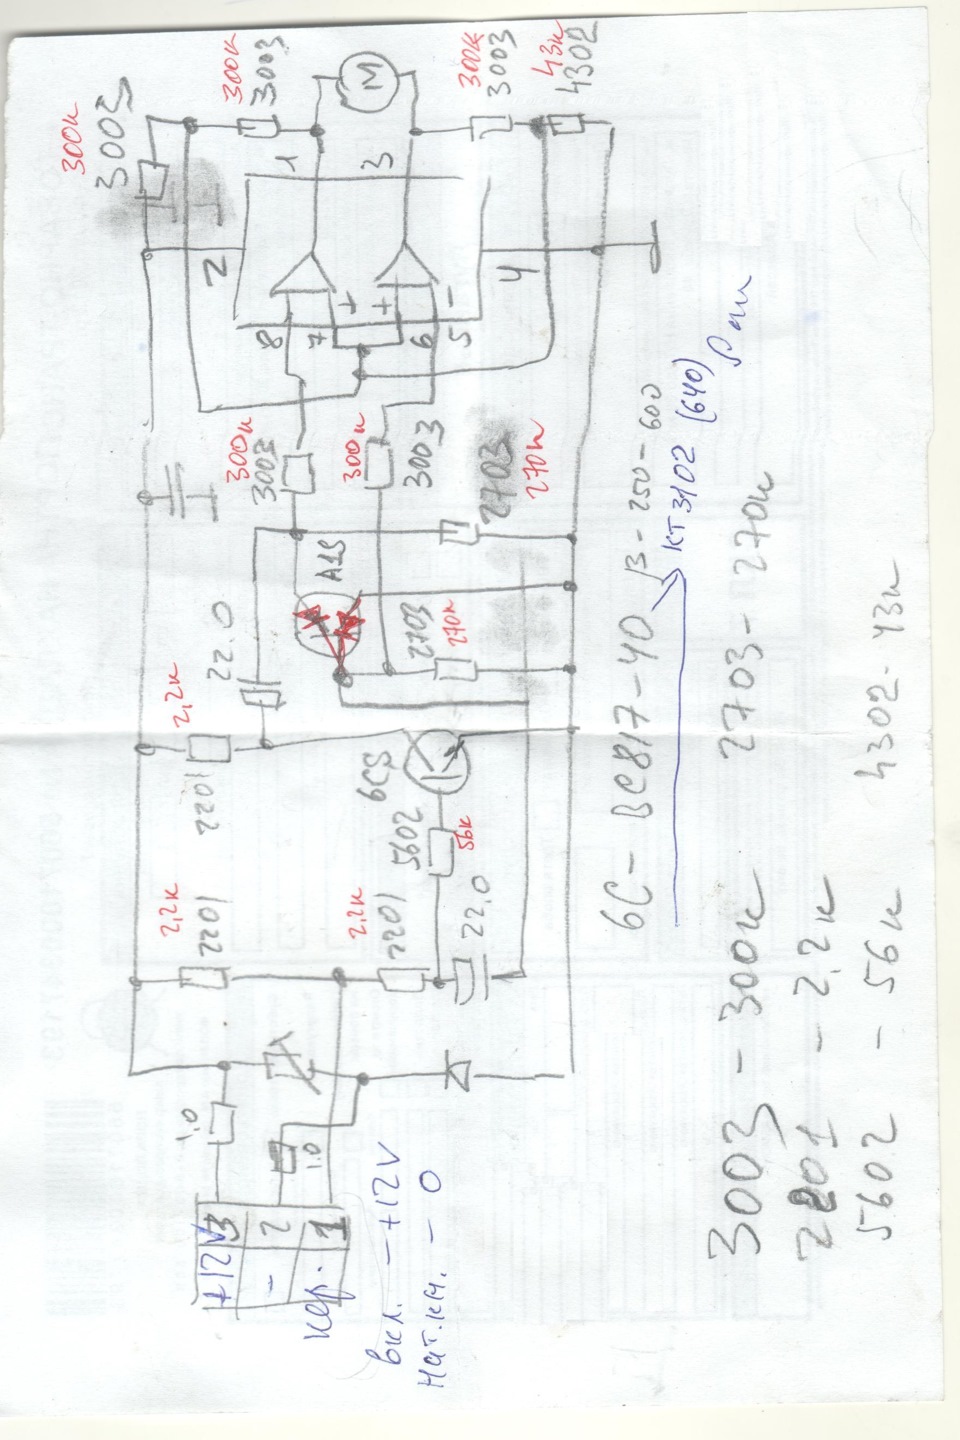 +12V 3
- 2
упр. 1
вкл. - +12V
Нат.км. - 0
1.0
1.0
2,2к
2201
2,2к
2201
22.0
5602
56к
6CS
2,2к
2201
22.0
A1S
2703
270к
2703
270к
300к
3003
300к
3003
8
7
6
5
+
+
-
2
4
1
3
M
300к
3003
300к
3003
300к
3003
43к
4302
6C - BC817-40 β - 250 - 600
КТ3102 (640)
3003 - 300к
2703 - 270к
2201 - 2,2к
5602 - 56к
4302 - 43к